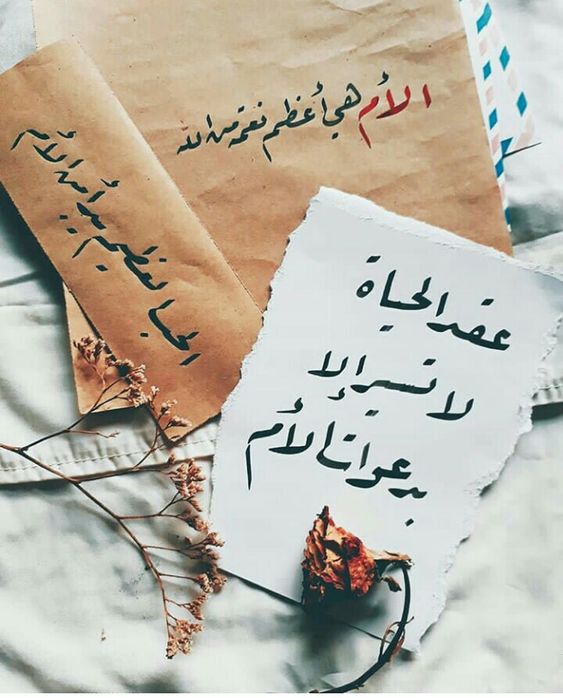 الأم هي أعظم نعمة من الله
الحب العظيم يبدأ من الأم
عقد الحياة
لا تسير إلا
بدعوات الأم